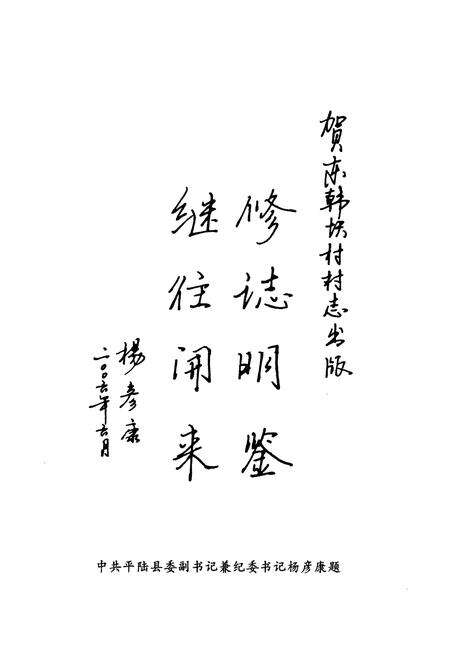 贺东韩坡村村志出版
修誌明鉴
继往开来
杨彦康
二〇〇六年六月
中共平陆县委副书记兼纪委书记杨彦康题